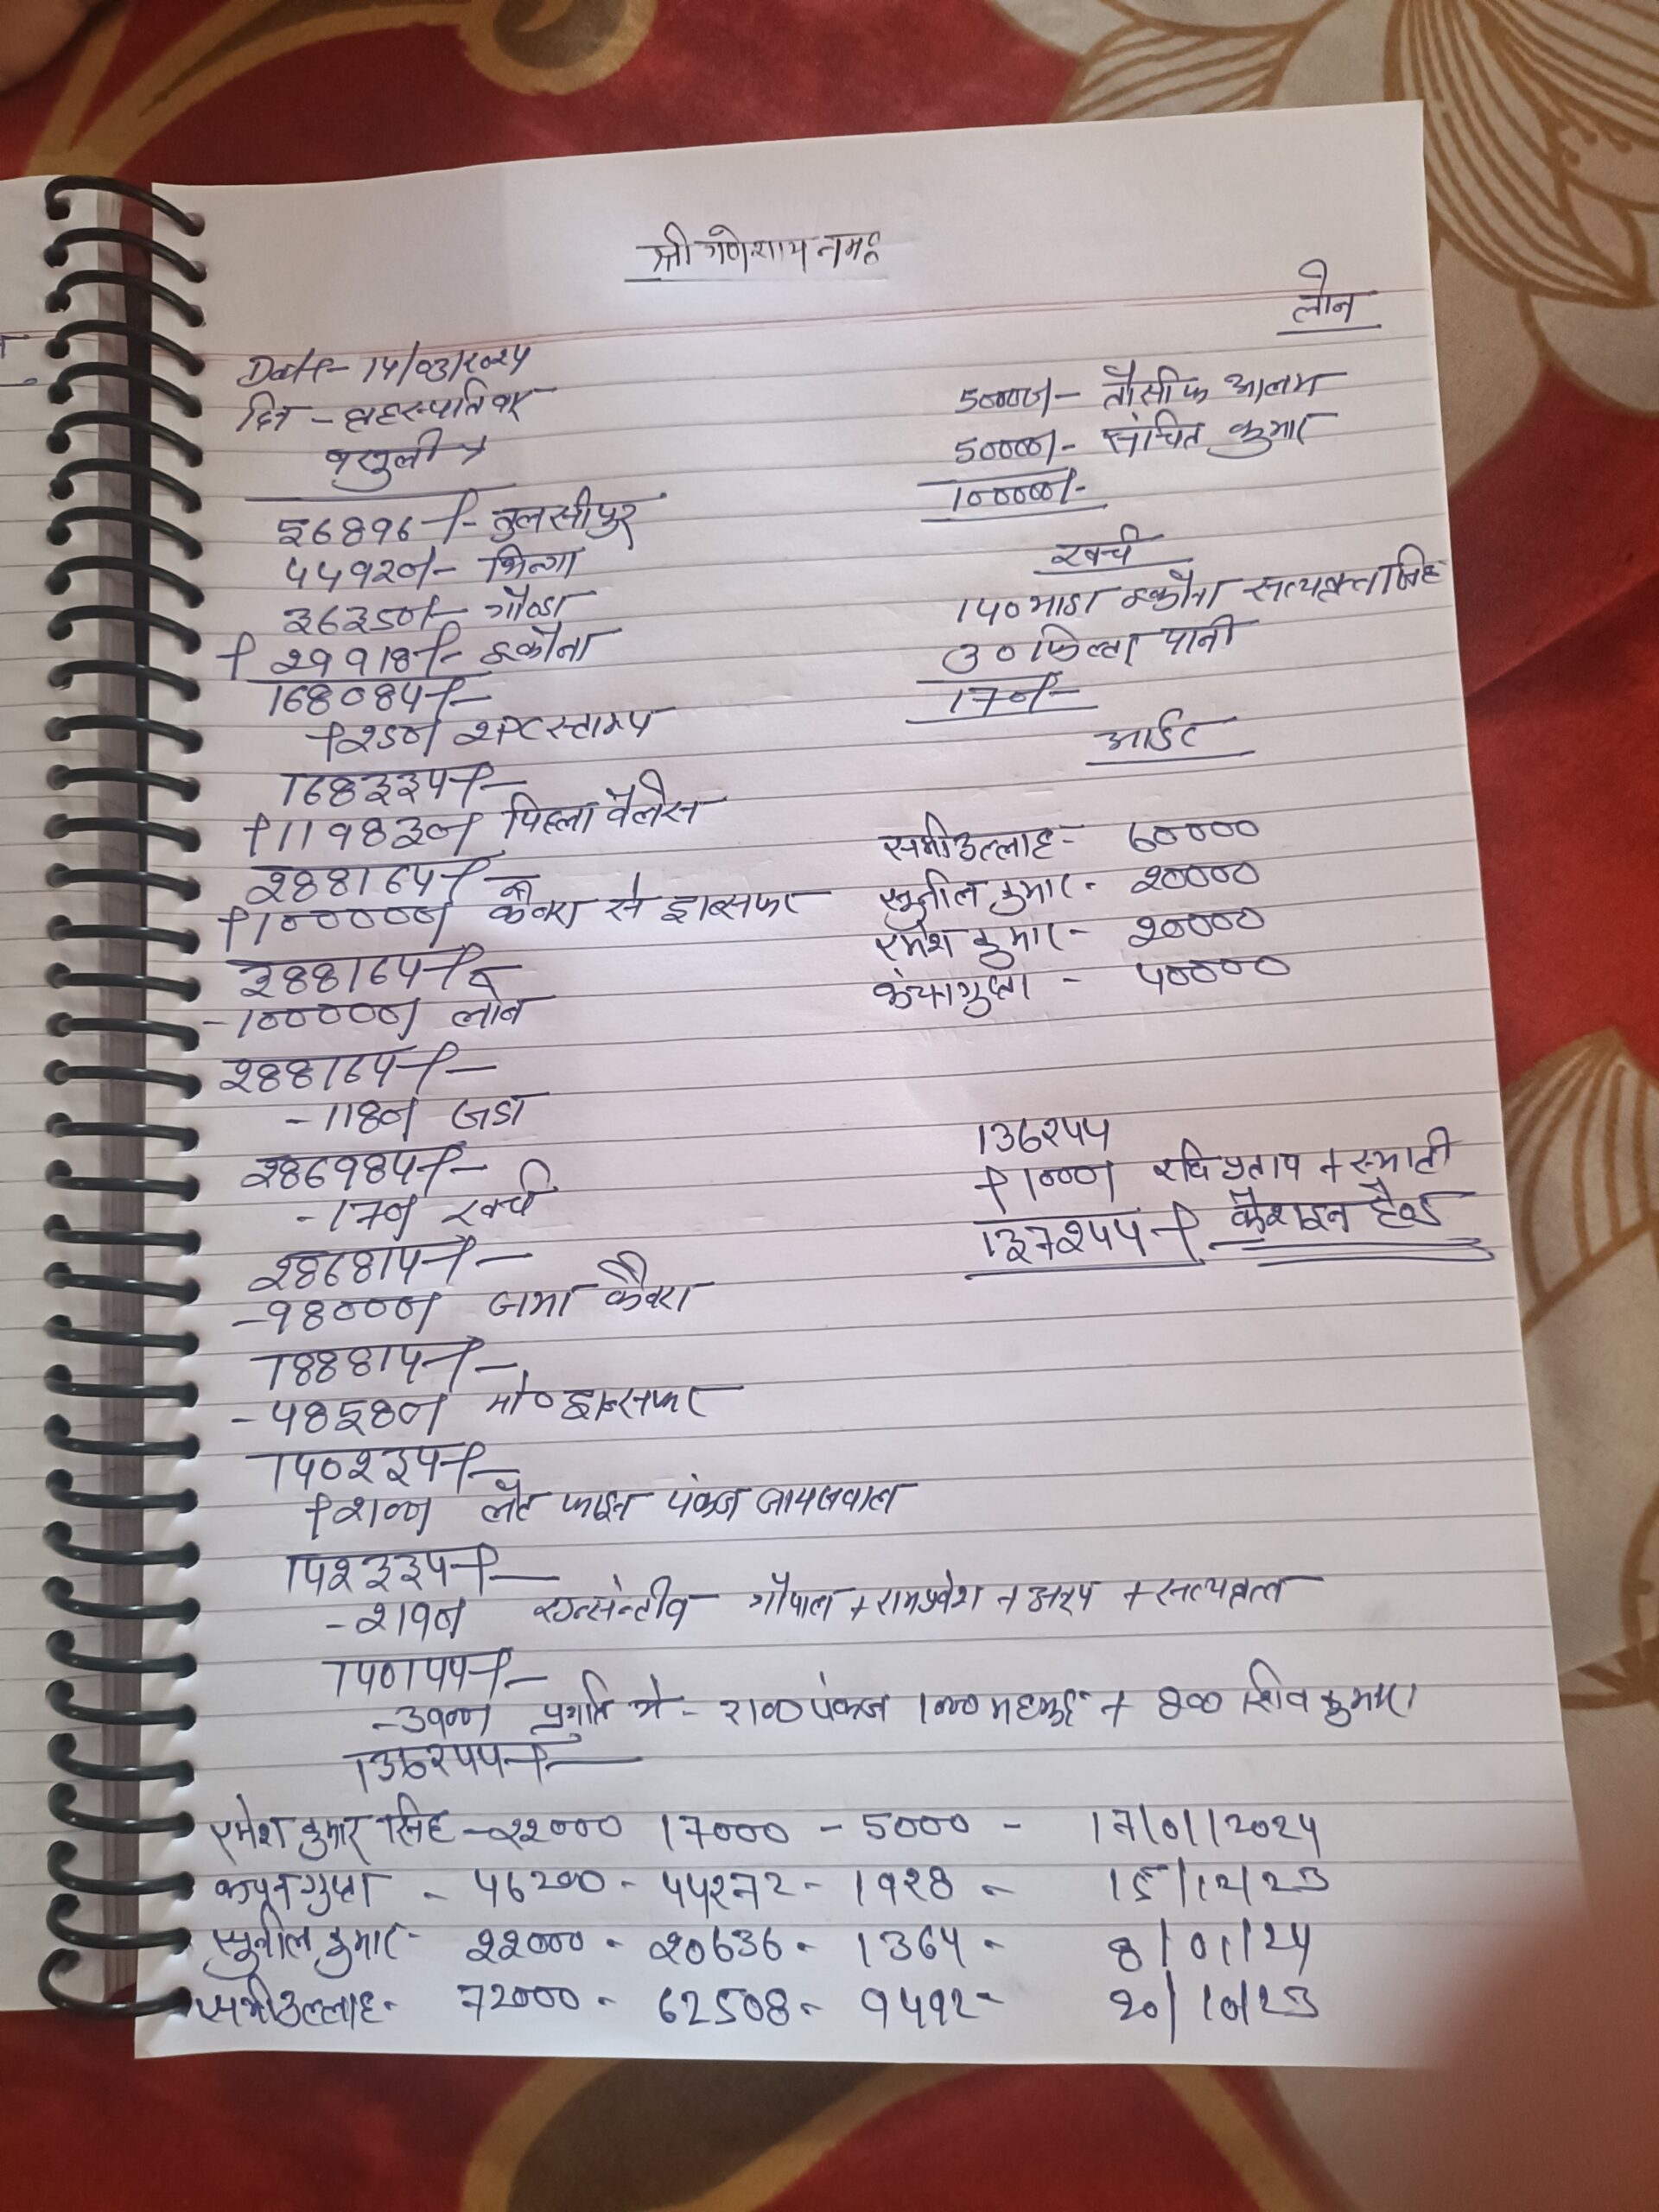 श्री गणेशाय नमः
लोन
Date- 14/03/2024
दिन - बृहस्पतिवार
वसूली →
56896/- तुलसीपुर
44920/- भिन्गा
36350/- गोण्डा
+ 29918/- इकौना
168084/-
+250/ शपट स्टाम्प
168334/-
+119830/ पिछला बैलेंस
288164/-
+100000/ केनरा से ट्रान्सफर
388164/-
-100000/ लोन
288164/-
-1180/ जडा
286984/-
-170/ खर्च
286814/-
-98000/ जमा कैनरा
188814/-
-48580/ मो० ट्रान्सफर
140234/-
+2100/ लेट फाइन पंकज जायसवाल
142334/-
-2190/ इन्सेन्टीव गोपाल + रामप्रवेश + + सत्यव्रत
140144/-
-3900/ प्रगति मे - 2100 पंकज 1000 + 800 शिव कुमार
136244/-
50000/- तौसीफ आलम
50000/- संचित कुमार
100000/-
खर्च
140 भाडा इकौना सत्यव्रत सिंह
30 फिल्टर पानी
170/-
आर्डर
समीउल्लाह - 60000
सुनील कुमार - 20000
रमेश कुमार - 20000
गुप्ता - 40000
136244
+1000/ रवि प्रताप +
137244/- कैशइन हैण्ड
रमेश कुमार सिंह - 22000 17000 - 5000 - 17/01/2024
गुप्ता - 46200 - 44272 - 1928 - 15/12/23
सुनील कुमार - 22000 - 20636 - 1364 - 8/01/24
समीउल्लाह - 72000 - 62508 - 9492 - 20/10/23